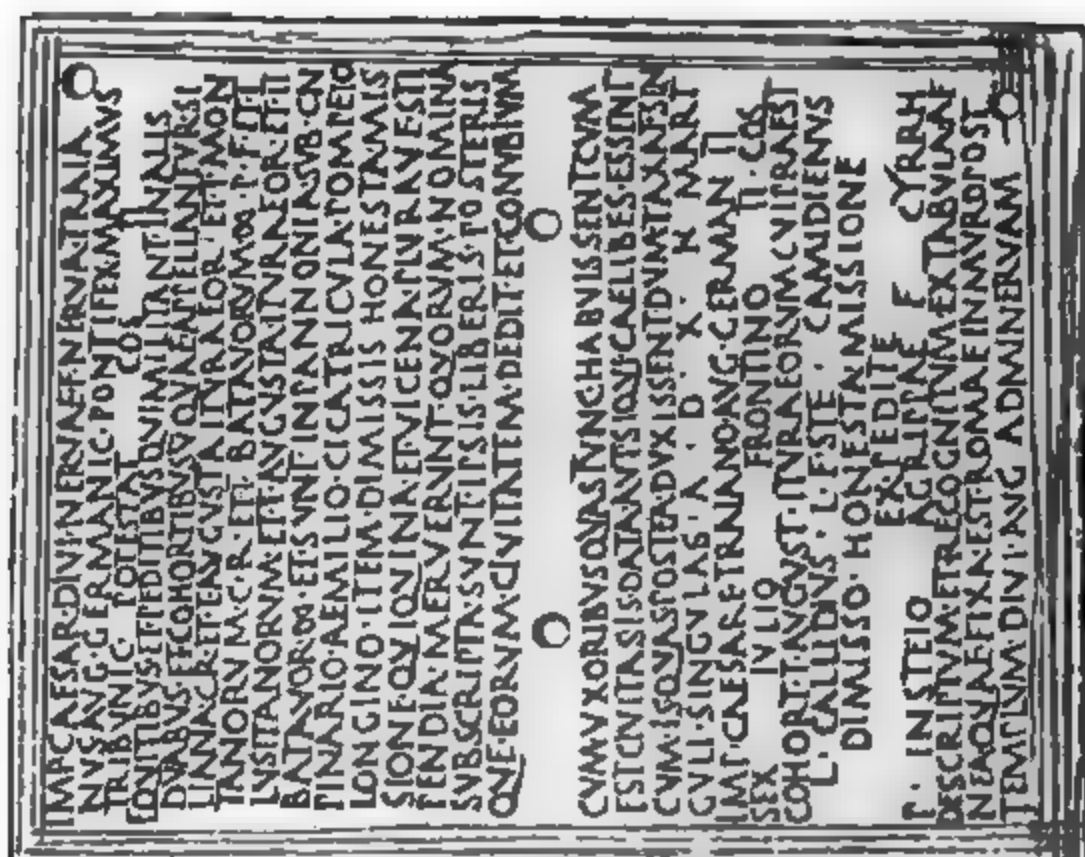 IMP·CAESAR·DIVI·NERVAE·F·NERVA·TRAIA
NVS·AVG·GERMANIC·PONTIFEX·MAXIMVS
TRIBVNIC·POTEST COS II
EQVITIBVS·ET·PEDITIBVS·QVI·MILITANT·IN·ALIS
DVABVS·ET·COHORTIBVS·QVAE·APPELLANTVR·SI
LIANA·C·R·ET·I·AVGVSTA·ITVRAEOR·ET·I·MON
TANORVM·C·R·ET·I·BATAVORVM·∞·P·F·ET·I
LVSITANORVM·ET·I·AVGVSTA·ITVRAEOR·ET·II
BATAVOR·∞·ET·SVNT·IN·PANNONIA·SVB·CN
PINARIO·AEMILIO·CICATRICVLA·POMPEIO
LONGINO·ITEM·DIMISSIS·HONESTA·MIS
SIONE·QVI·QVINA·ET·VICENA·PLVRAVE·STI
PENDIA·MERVERVNT·QVORVM·NOMINA
SVBSCRIPTA·SVNT·IPSIS·LIBERIS·POSTERIS
QVE·EORVM·CIVITATEM·DEDIT·ET·CONVBIVM
CVM·VXORIBVS·QVAS·TVNC·HABVISSENT·CVM
EST·CIVITAS·IS·DATA·AVT·SIQVI·CAELIBES·ESSENT
CVM·IS·QVAS·POSTEA·DVXISSENT·DVMTAXAT·SIN
GVLI·SINGVLAS·A·D·X·K·MART
IMP·CAESARE·TRAIANO·AVG·GERMAN II
SEX IVLIO FRONTINO II·COS
COHORT·I·AVGVST·ITVRAEORVM·CVI·PRAEST
L·CALIDIVS·L·F·STE·CAMIDIENVS
DIMISSO·HONESTA·MISSIONE
EX PEDITE
P·INSTEIO AGRIPPAE F CYRRH
DESCRIPTVM·ET·RECOGNITVM·EX·TABVLA·AE
NEA·QVAE·FIXA·EST·ROMAE·IN·MVRO·POST
TEMPLVM·DIVI·AVG AD·MINERVAM